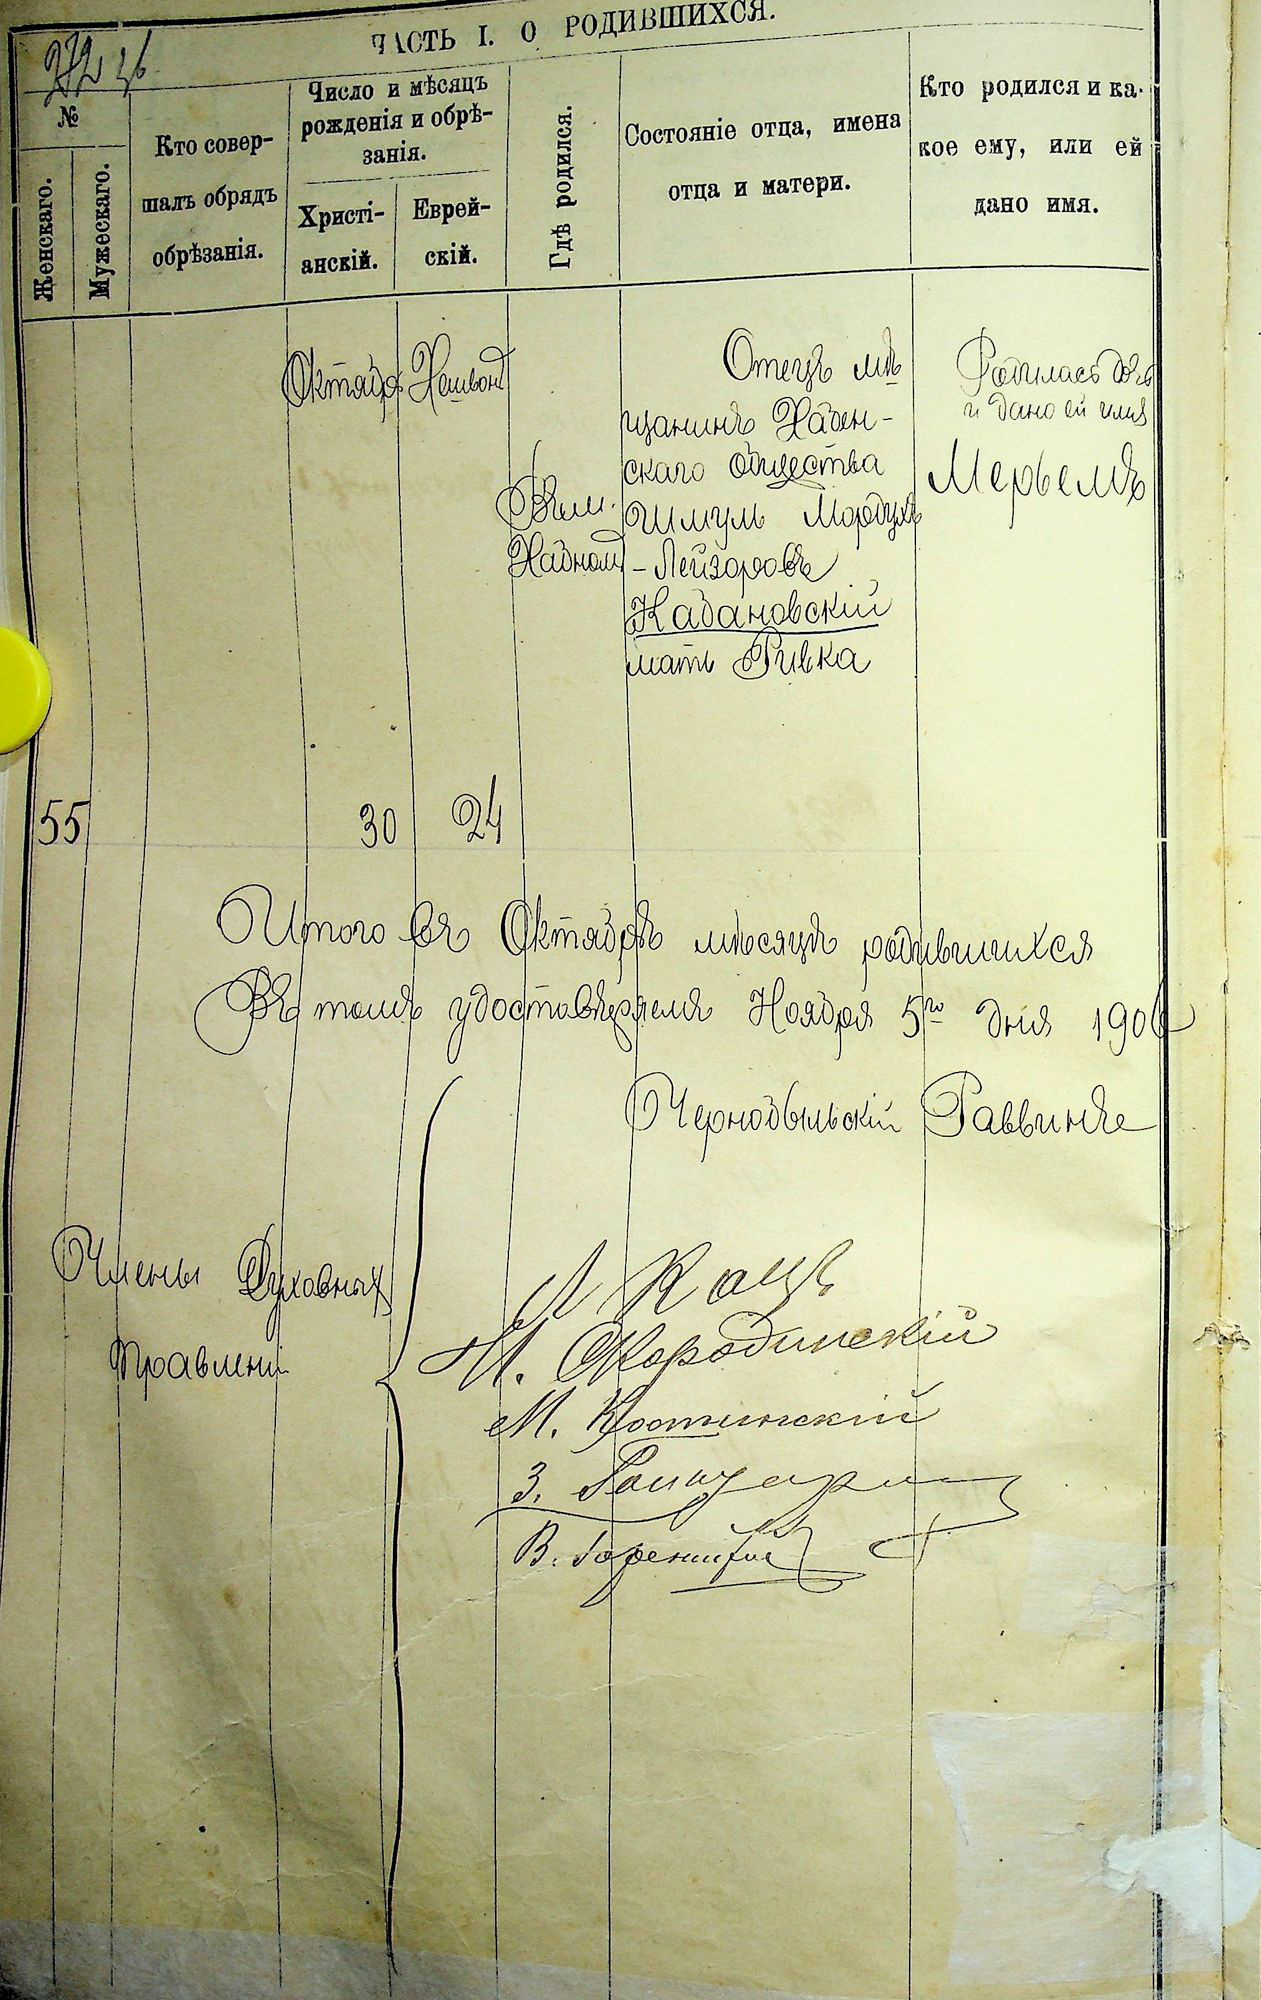 ЧАСТЬ I. О РОДИВШИХСЯ.
272
№
Женскаго.
Мужескаго.
Кто совер-
шалъ обрядъ
обрѣзанія.
Число и мѣсяцъ
рожденія и обрѣ-
занія.
Христі-
анскій.
Еврей-
скій.
Гдѣ родился.
Состояніе отца, имена
отца и матери.
Кто родился и ка-
кое ему, или ей
дано имя.
55
Октября
30
Хешвон
24
Въ м.
Хабномъ
Отецъ мѣ
щанинъ Хабен-
скаго общества
Шмуль Мордухъ
- Лейзоровъ
Кабановскій
мать Ривка
Родилась дочь
и дано ей имя
Мерьемъ
Итого въ Октябрѣ мѣсяцѣ родившихся
Въ томъ удостовѣряемъ Ноября 5го дня 1906
Чернобыльскій Раввинъ
Члены Духовныхъ
Правленій
Л Кацъ
М. Скородинскій
М. Костинскій
З.
В.